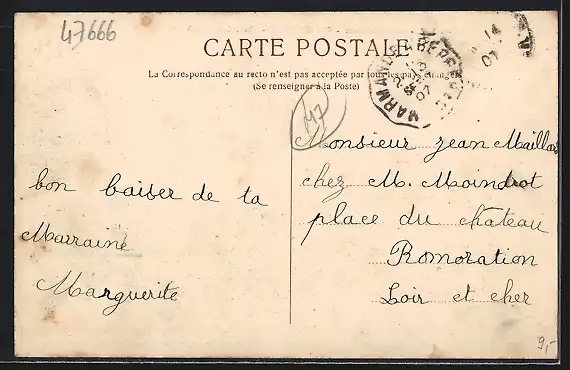 47666
CARTE POSTALE
La Correspondance au recto n'est pas acceptée par tous les pays étrangers
(Se renseigner à la Poste)
47
bon baiser de ta
Marraine
Marguerite
Monsieur Jean Maillard
chez M. Moindrot
place du chateau
Romoration
Loir et cher
9,-